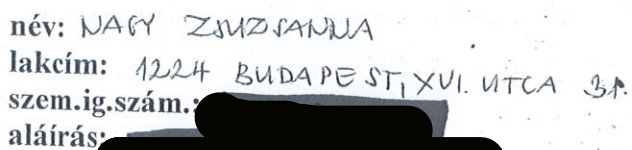 név: NAGY ZSUZSANNA
lakcím: 1224 BUDAPEST, XVI. UTCA
szem.ig.szám.:
aláírás: